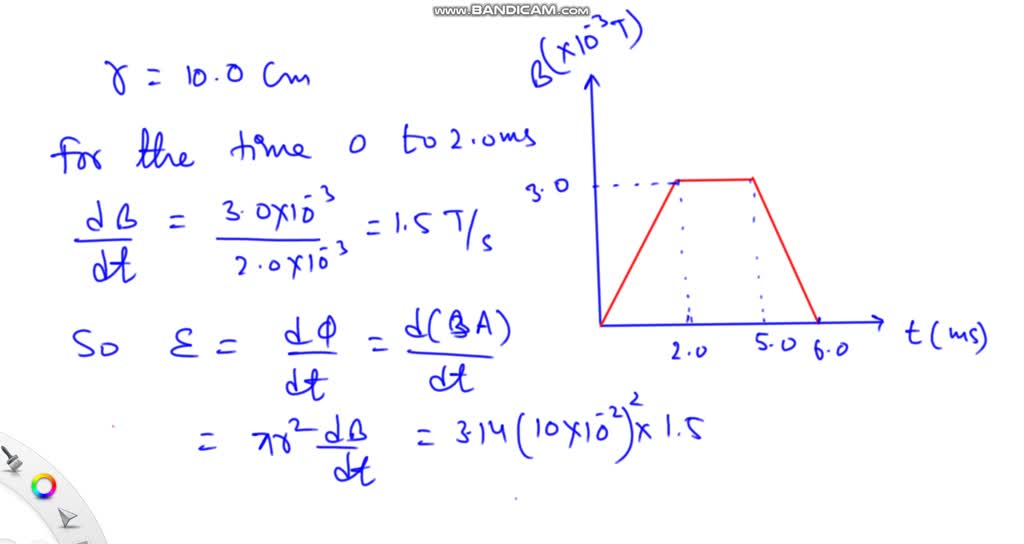 www.BANDICAM.com
r = 10.0 cm
for the time 0 to 2.0ms
dB/dt = 3.0×10⁻³/2.0×10⁻³ = 1.5 T/s
So ε = dΦ/dt = d(BA)/dt
= πr² dB/dt = 3.14(10×10⁻²)²×1.5
B(×10⁻³T)
3.0
2.0 5.0 6.0 t(ms)